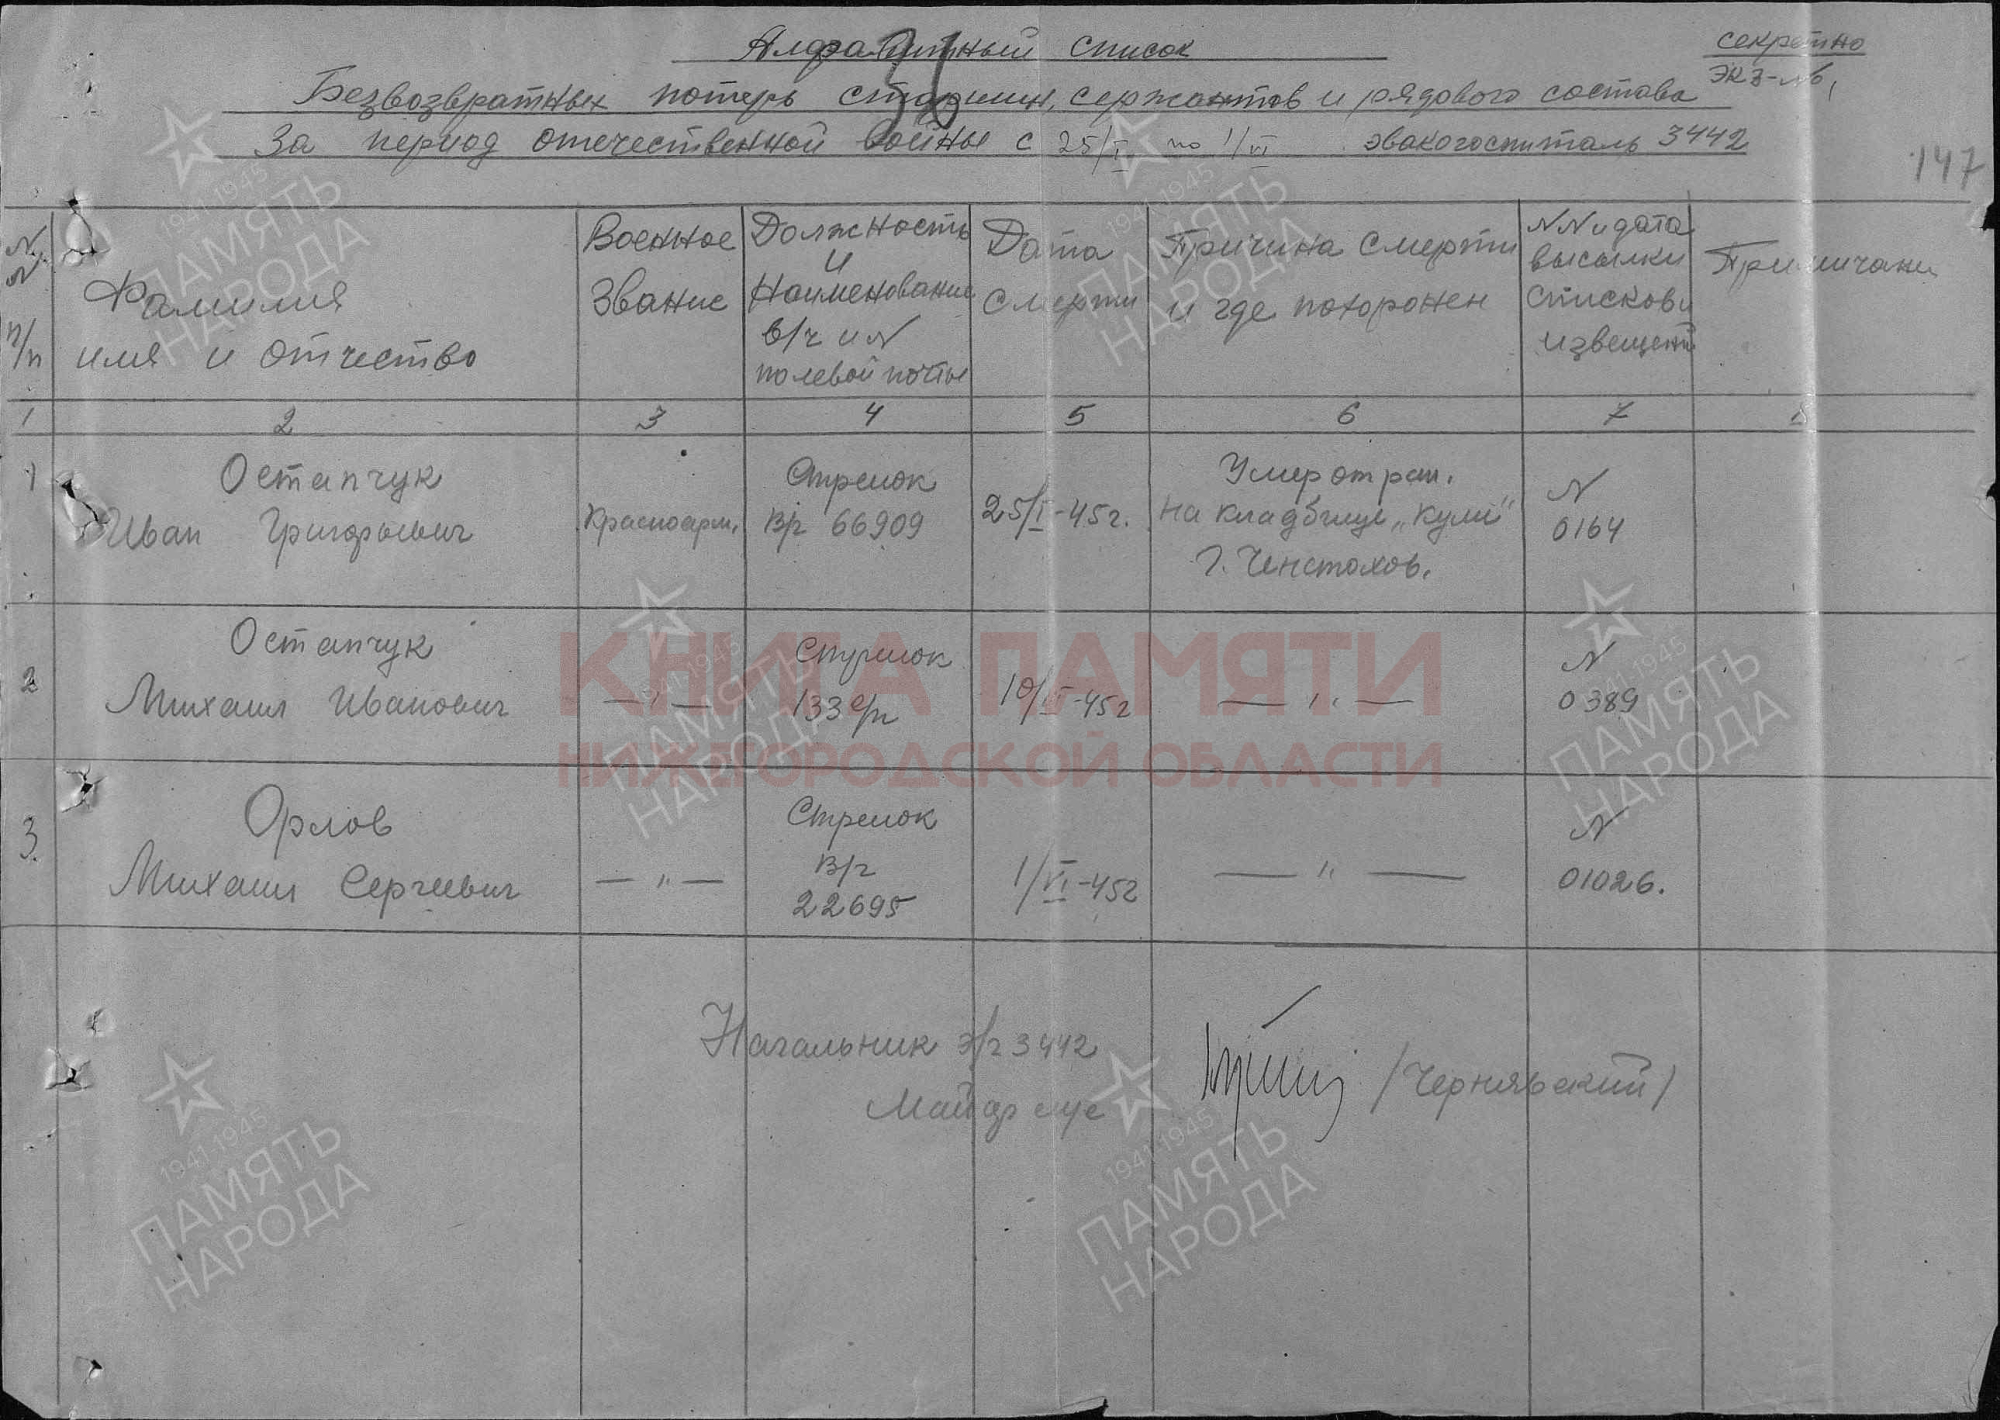 Алфавитный список
секретно
экз-№1
Безвозвратных потерь старшин, сержантов и рядового состава
За период отечественной войны с 25/I по 1/VI эвакогоспиталь 3442
147
№ № п/п
Фамилия имя и отчество
Военное Звание
Должность и Наименование в/ч и N полевой почты
Дата смерти
Причина смерти и где похоронен
N N и дата высылки списков и извещен
Примечани
1 2 3 4 5 6 7 8
1
Остапчук
Иван Григорьевич
Красноарм.
Стрелок
в/ч 66909
25/I-45г.
Умер от ран.
На кладбище „Куле"
г. Ченстохов.
N
0164
2
Остапчук
Михаил Иванович
— " —
Стрелок
133 с/п
10/-45г
— " —
N
0389
3.
Орлов
Михаил Сергеевич
— " —
Стрелок
в/ч
22695
1/VI-45г
— " —
N
01026.
Начальник э/г 3442
Майор м/с
/Чернявский/
КНИГА ПАМЯТИ
НИЖЕГОРОДСКОЙ ОБЛАСТИ
1941-1945
ПАМЯТЬ
НАРОДА
1941-1945
ПАМЯТЬ
НАРОДА
1941-1945
ПАМЯТЬ
НАРОДА
1941-1945
ПАМЯТЬ
НАРОДА
1941-1945
ПАМЯТЬ
НАРОДА
1941-1945
ПАМЯТЬ
НАРОДА